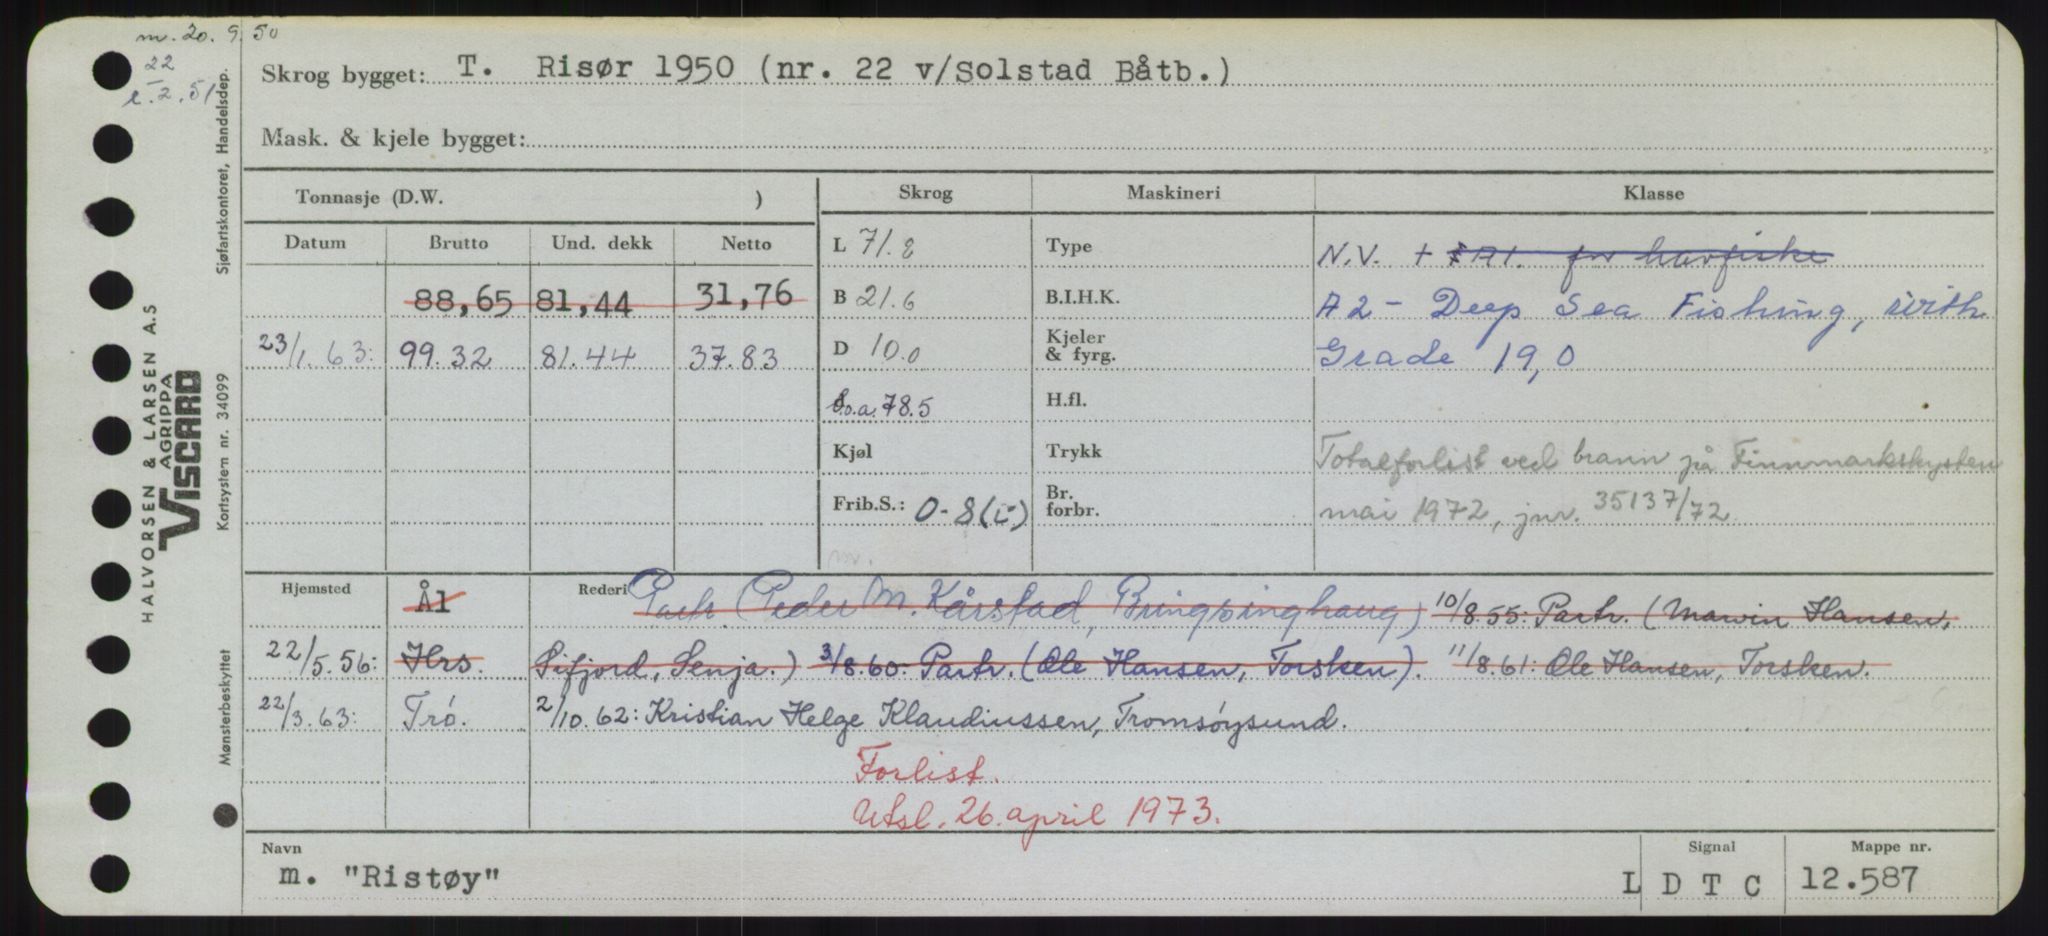 m. 20. 9. 50
22
r. 2. 51
Skrog bygget: T. Risør 1950 (nr. 22 v/Solstad Båtb.)
Mask. & kjele bygget:
Tonnasje (D.W. )
Skrog Maskineri Klasse
Datum Brutto Und. dekk Netto
88,65 81,44 31,76
23/1. 63: 99.32 81.44 37.83
L 71.2
B 21.6
D 10.0
l.o.a. 78.5
Kjøl
Frib.S.: 0-8(i)
Type
B.I.H.K.
Kjeler
& fyrg.
H.fl.
Trykk
Br.
forbr.
N.V. + A1. for havfiske
A2 - Deep Sea Fishing, with
Grade 19,0
Totalforlist ved brann på Finnmarkskysten
mai 1972, jnr. 35137/72
m.
Hjemsted Ål Rederi Partr. (Peder M. Kårstad, Bringsinghaug) 10/8.55: Partr. (Marvin Hansen,
22/5.56: Hrs. Sifjord, Senja.) 3/8.60: Partr. (Ole Hansen, Torsken). 11/8.61: Ole Hansen, Torsken.
22/3.63: Trö. 2/10.62: Kristian Helge Klaudiussen, Tromsöysund.
Forlist.
Utsl. 26. april 1973.
Navn m. "Ristøy"
Signal L D T C
Mappe nr. 12.587
HALVORSEN & LARSEN A.S
AGRIPPA
VISCARD
Sjøfartskontoret, Handelsdep.
Kortsystem nr. 34099
Mønsterbeskyttet